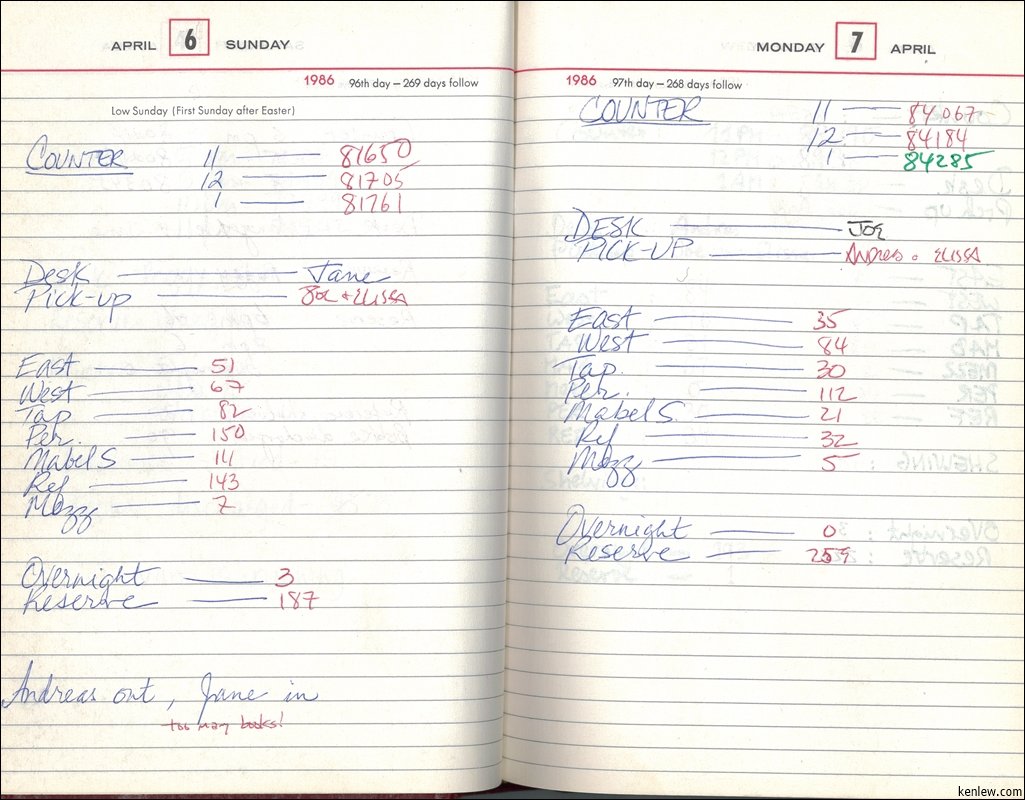 APRIL 6 SUNDAY
1986 96th day — 269 days follow
Low Sunday (First Sunday after Easter)
COUNTER 11 — 81650
12 — 81705
1 — 81761
Desk — Jane
Pick-up — Joe + Elissa
East — 51
West — 67
Tap — 82
Per. — 150
Mabel S — 141
Ref — 143
Mezz — 7
Overnight — 3
Reserve — 187
Andreas out, Jane in
too many books!
MONDAY 7 APRIL
1986 97th day — 268 days follow
COUNTER 11 — 84067
12 — 84184
1 — 84285
DESK — JOE
PICK-UP — Andreas + Elissa
East — 35
West — 84
Tap. — 30
Per. — 112
Mabel S. — 21
Ref — 32
Mezz — 5
Overnight — 0
Reserve — 259
kenlew.com